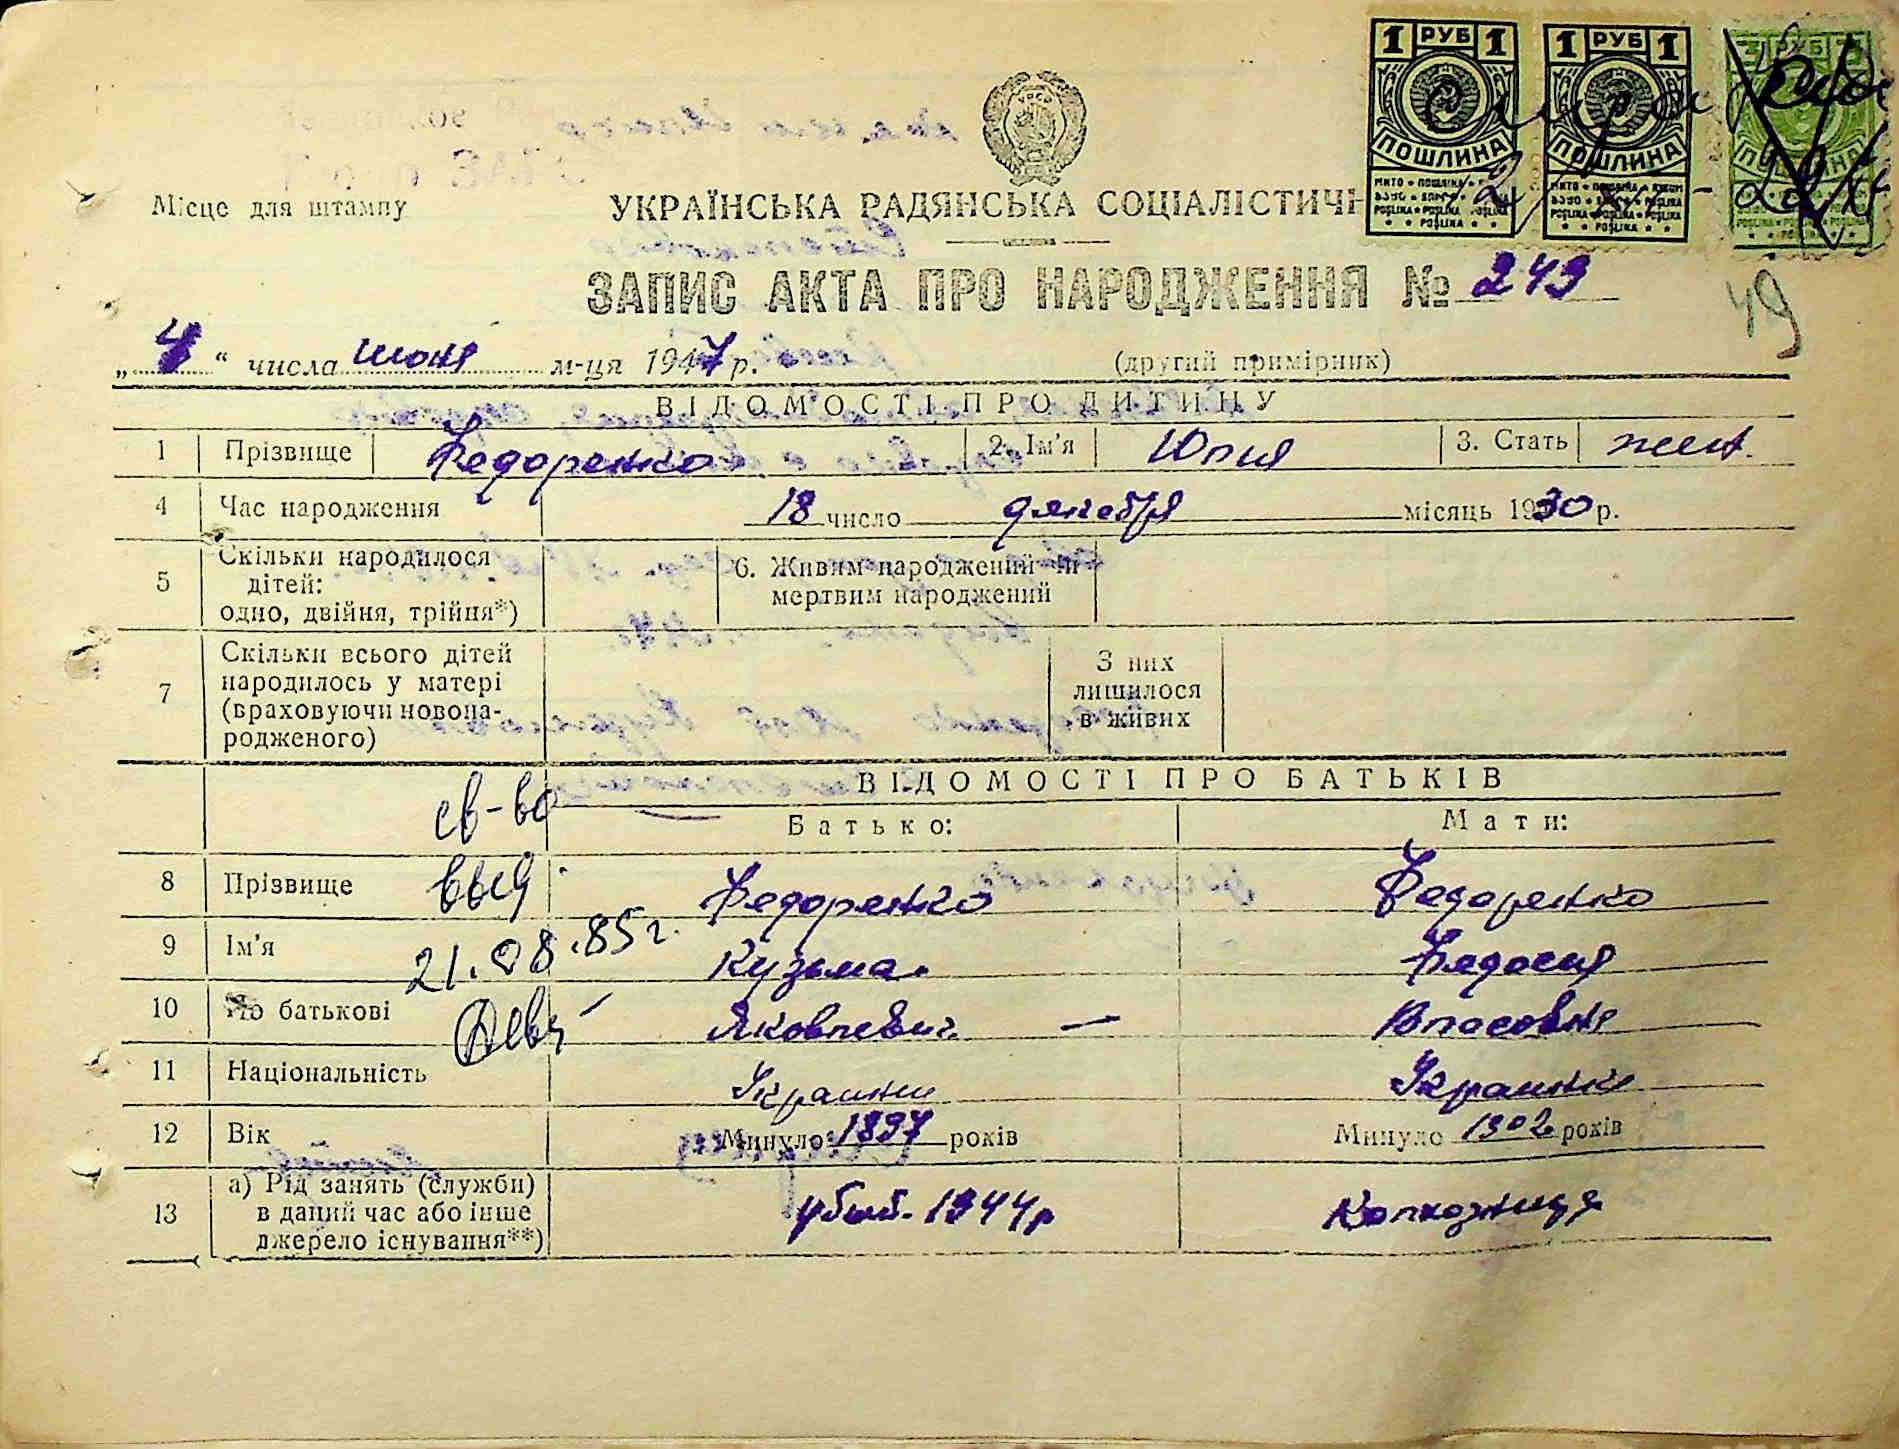 1 РУБ 1
1 РУБ 1
РУБ
ПОШЛИНА
ПОШЛИНА
Місце для штампу
УКРАЇНСЬКА РАДЯНСЬКА СОЦІАЛІСТИЧН
ЗАПИС АКТА ПРО НАРОДЖЕННЯ № 249
49
„4“ числа июня м-ця 1947 р. (другий примірник)
ВІДОМОСТІ ПРО ДИТИНУ
1 Прізвище Федоренко 2. Ім'я Юлия 3. Стать жен.
4 Час народження 18 число декабря місяць 1930 р.
5 Скільки народилося дітей: одно, двійня, трійня*) 6. Живим народжений чи мертвим народжений
7 Скільки всього дітей народилось у матері (враховуючи новонародженого) З них лишилося в живих
св-во
ВІДОМОСТІ ПРО БАТЬКІВ
Батько: Мати:
8 Прізвище выд. Федоренко Федоренко
9 Ім'я 21.08.85г. Кузьма Федосия
10 По батькові Яковлевич Власовна
11 Національність Украинец Украинка
12 Вік Минуло 1897 років Минуло 1902 років
13 а) Рід занять (служби) в даний час або інше джерело існування**) убит. 1944г Колхозница